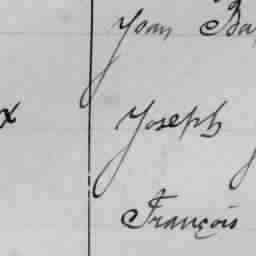 Jean Ba
x Joseph
François